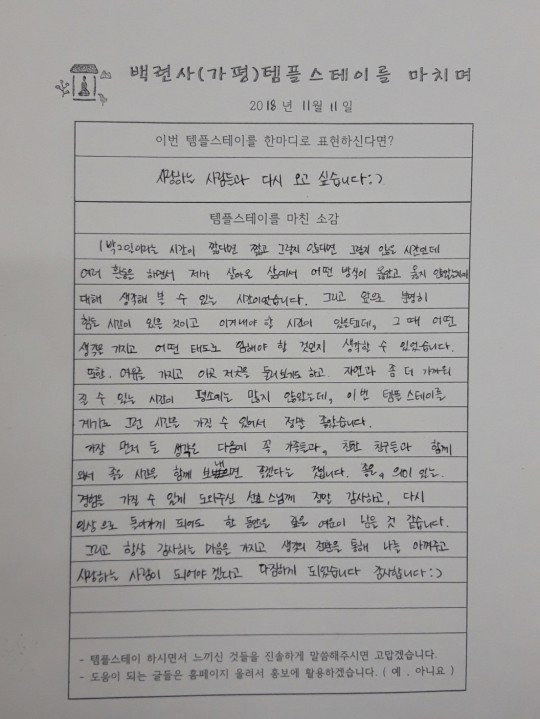 백련사(가평)템플스테이를 마치며
2018년 11월 11일
이번 템플스테이를 한마디로 표현하신다면?
사랑하는 사람들과 다시 오고 싶습니다:)
템플스테이를 마친 소감
1박2일이라는 시간이 짧다면 짧고 그렇지 않다면 그렇지 않을 시간인데
여러 활동을 하면서 제가 살아온 삶에서 어떤 방식이 옳았고 옳지 않았는지에
대해 생각해 볼 수 있는 시간이었습니다. 그리고 앞으로 분명히
힘든 시간이 있을 것이고 이겨내야 할 시간이 있을텐데, 그 때 어떤
생각을 가지고 어떤 태도로 임해야 할 것인지 생각할 수 있었습니다.
또한, 여유를 가지고 이곳 저곳을 둘러보기도 하고. 자연과 좀 더 가까워
질 수 있는 시간이 평소에는 많지 않았는데, 이번 템플스테이를
계기로 그런 시간을 가질 수 있어서 정말 좋았습니다.
가장 먼저 든 생각은 다음에 꼭 가족들과, 친한 친구들과 함께
와서 좋은 시간을 함께 보냈으면 좋겠다는 것입니다. 좋은, 의미 있는
경험을 가질 수 있게 도와주신 스님께 정말 감사하고, 다시
일상으로 돌아가게 되어도 한 동안은 깊은 여운이 남을 것 같습니다.
그리고 항상 감사하는 마음을 가지고 생각의 전환을 통해 나를 아껴주고
사랑하는 사람이 되어야겠다고 다짐하게 되었습니다 감사합니다:)
- 템플스테이 하시면서 느끼신 것들을 진솔하게 말씀해주시면 고맙겠습니다.
- 도움이 되는 글들은 홈페이지 올려서 홍보에 활용하겠습니다. ( 예 , 아니요 )